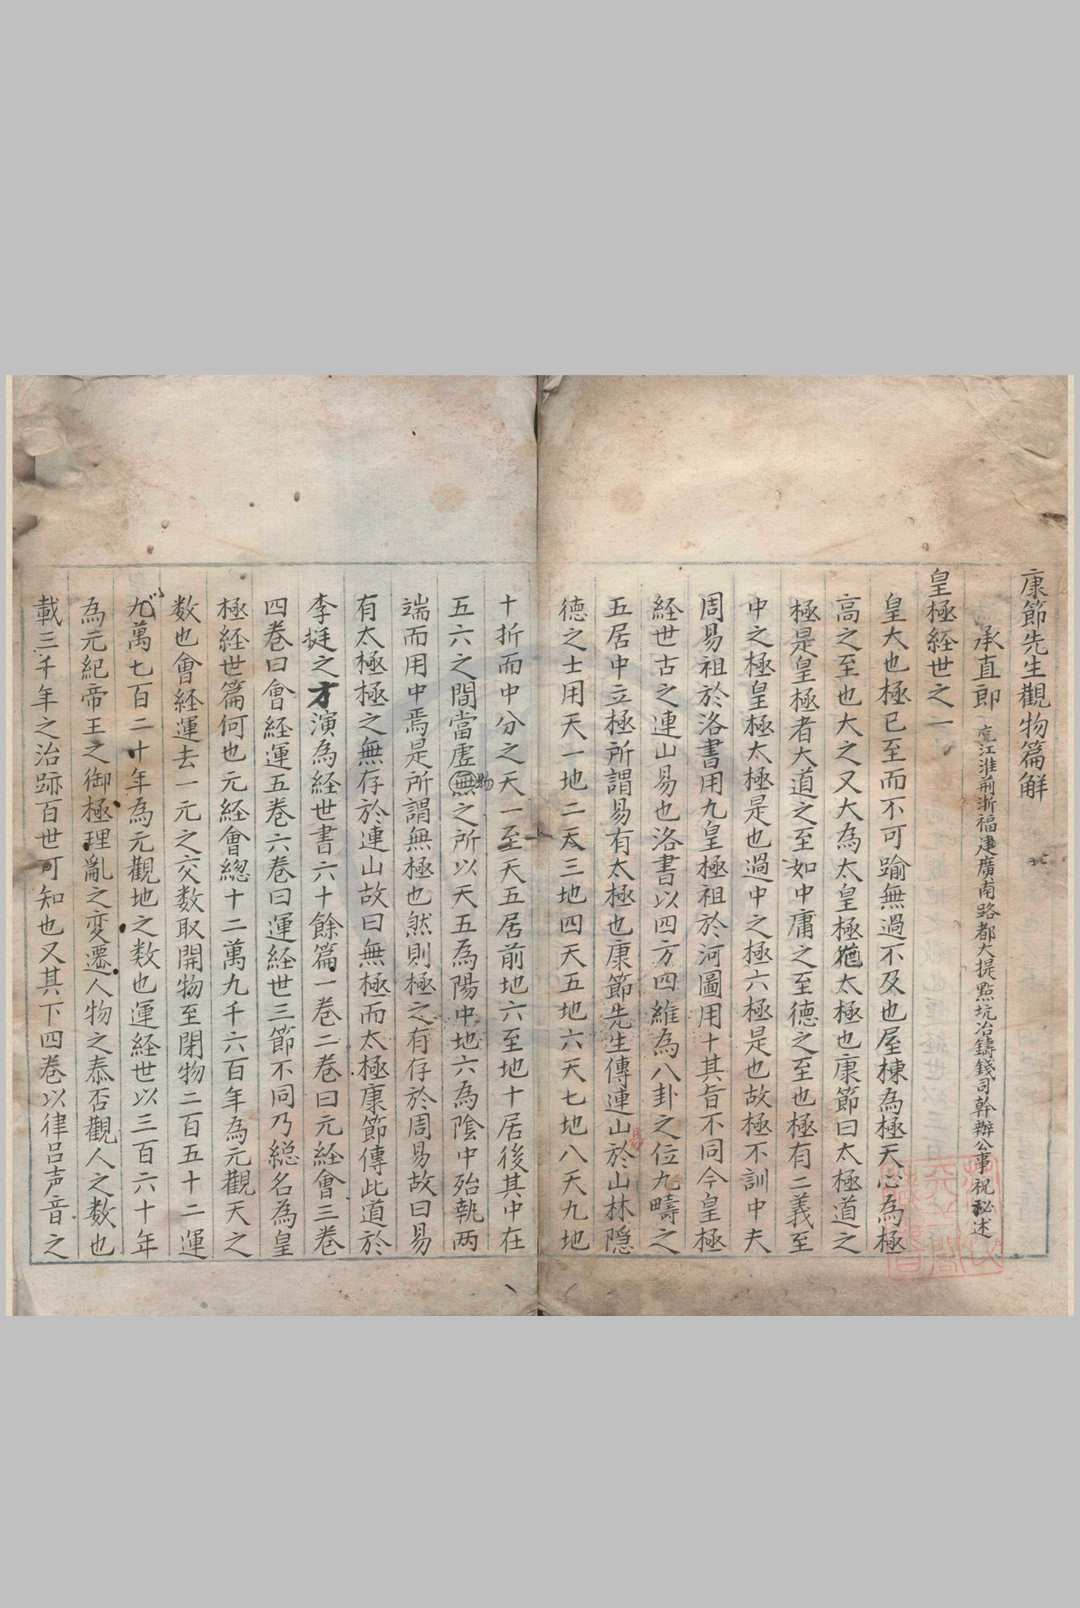 康節先生觀物篇解
承直郎充江淮荊浙福建廣南路都大提點坑冶鑄錢司幹辦公事祝秘述
皇極経世之一
皇大也極已至而不可踰無過不及也屋棟為極天心為極
高之至也大之又大為太皇極猶太極也康節曰太極道之
極是皇極者大道之至如中庸之至德之至也極有二義至
中之極皇極太極是也過中之極六極是也故極不訓中夫
周易祖於洛書用九皇極祖於河圖用十其旨不同今皇極
経世古之連山易也洛書以四方四維為八卦之位九疇之
五居中立極所謂易有太極也康節先生傳連山易於山林隱
德之士用天一地二天三地四天五地六天七地八天九地
十折而中分之天一至天五居前地六至地十居後其中在
五六之間當虛無物之所以天五為陽中地六為陰中殆執兩
端而用中焉是所謂無極也然則極之有存於周易故曰易
有太極極之無存於連山故曰無極而太極康節傳此道於
李挺之才演為経世書六十餘篇一卷二卷曰元経會三卷
四卷曰會経運五卷六卷曰運経世三節不同乃総名為皇
極経世篇何也元経會総十二萬九千六百年為元觀天之
数也會経運去一元之交数取開物至閉物二百五十二運
九萬七百二十年為元觀地之数也運経世以三百六十年
為元紀帝王之御極理亂之变遷人物之泰否觀人之数也
載三千年之治跡百世可知也又其下四卷以律呂声音之